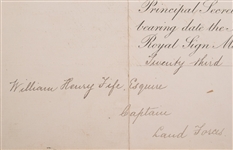 Principal Secre
bearing date the
Royal Sign M
Twenty third
William Henry Fife, Esquire
Captain
Land Forces